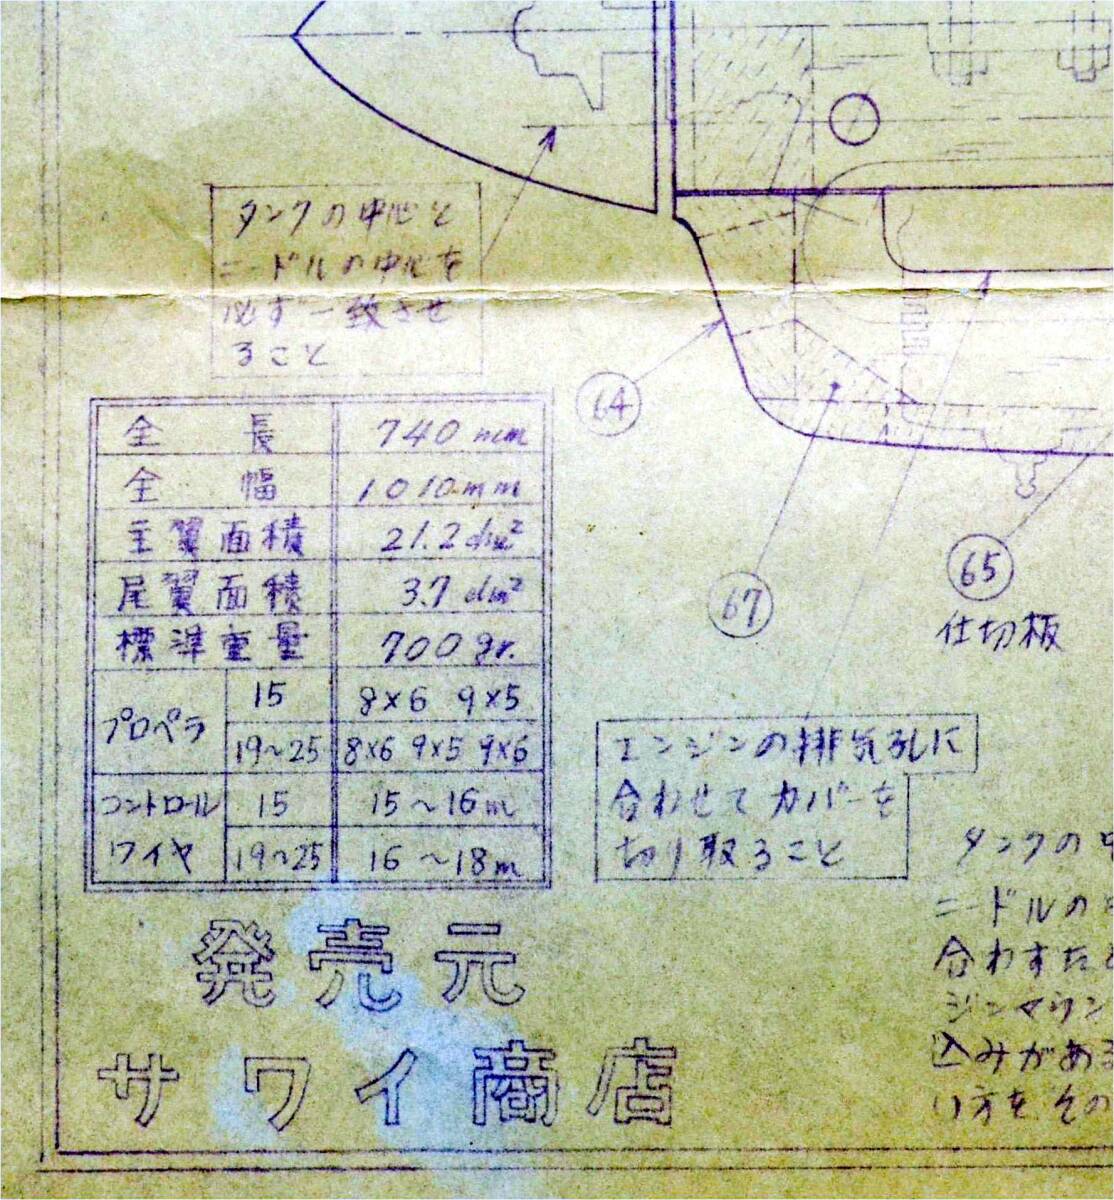 タンクの中心と
ニードルの中心を
必ず一致させ
ること
64
67
65
仕切板
全長 740mm
全幅 1010mm
主翼面積 21.2dm²
尾翼面積 3.7dm²
標準重量 700gr.
プロペラ 15 8×6 9×5
19~25 8×6 9×5 9×6
コントロール 15 15~16m
ワイヤ 19~25 16~18m
エンジンの排気孔に
合わせてカバーを
切り取ること
タンクの
ニードルの
合わすた
ジンマウン
込みがあ
り方をその
発売元
サワイ商店